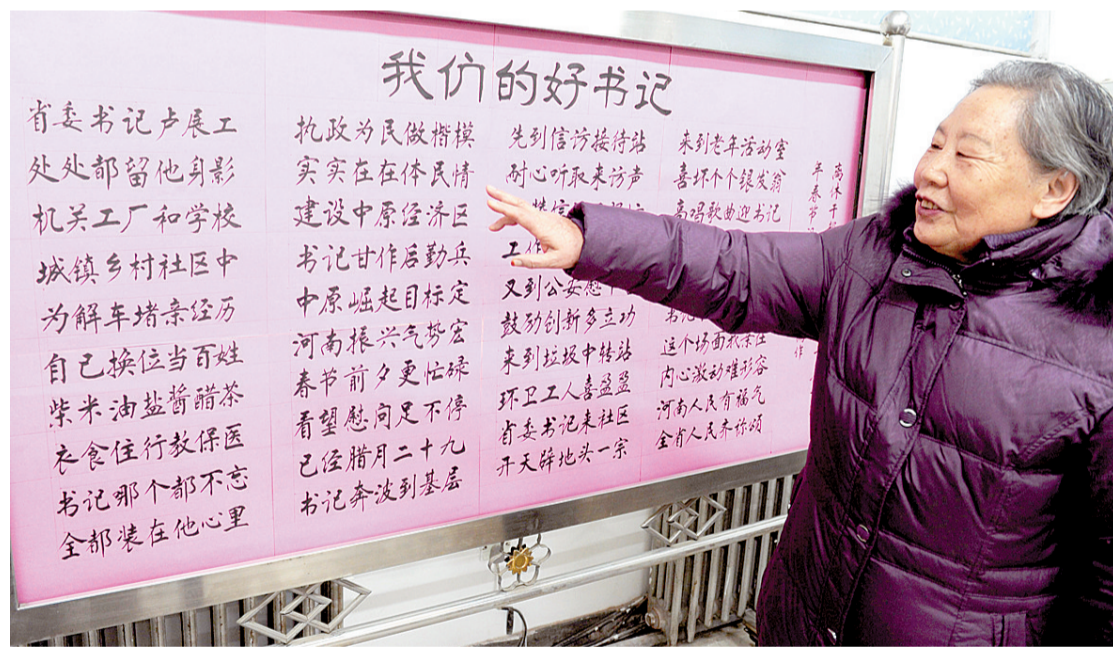 我们的好书记
省委书记卢展工
处处都留他身影
机关工厂和学校
城镇乡村社区中
为解车堵亲经历
自己换位当百姓
柴米油盐酱醋茶
衣食住行教保医
书记哪个都不忘
全部装在他心里
执政为民做楷模
实实在在体民情
建设中原经济区
书记甘作后勤兵
中原崛起目标定
河南振兴气势宏
春节前夕更忙碌
看望慰问足不停
已经腊月二十九
书记奔波到基层
先到信访接待站
耐心听取来访声
工作
又到公安慰
鼓励创新多立功
来到垃圾中转站
环卫工人喜盈盈
省委书记来社区
开天辟地头一宗
来到老年活动室
喜坏个个银发翁
高唱歌曲迎书记
书记
这个场面
内心激动难形容
河南人民有福气
全省人民齐称颂
离休干
年春节
作